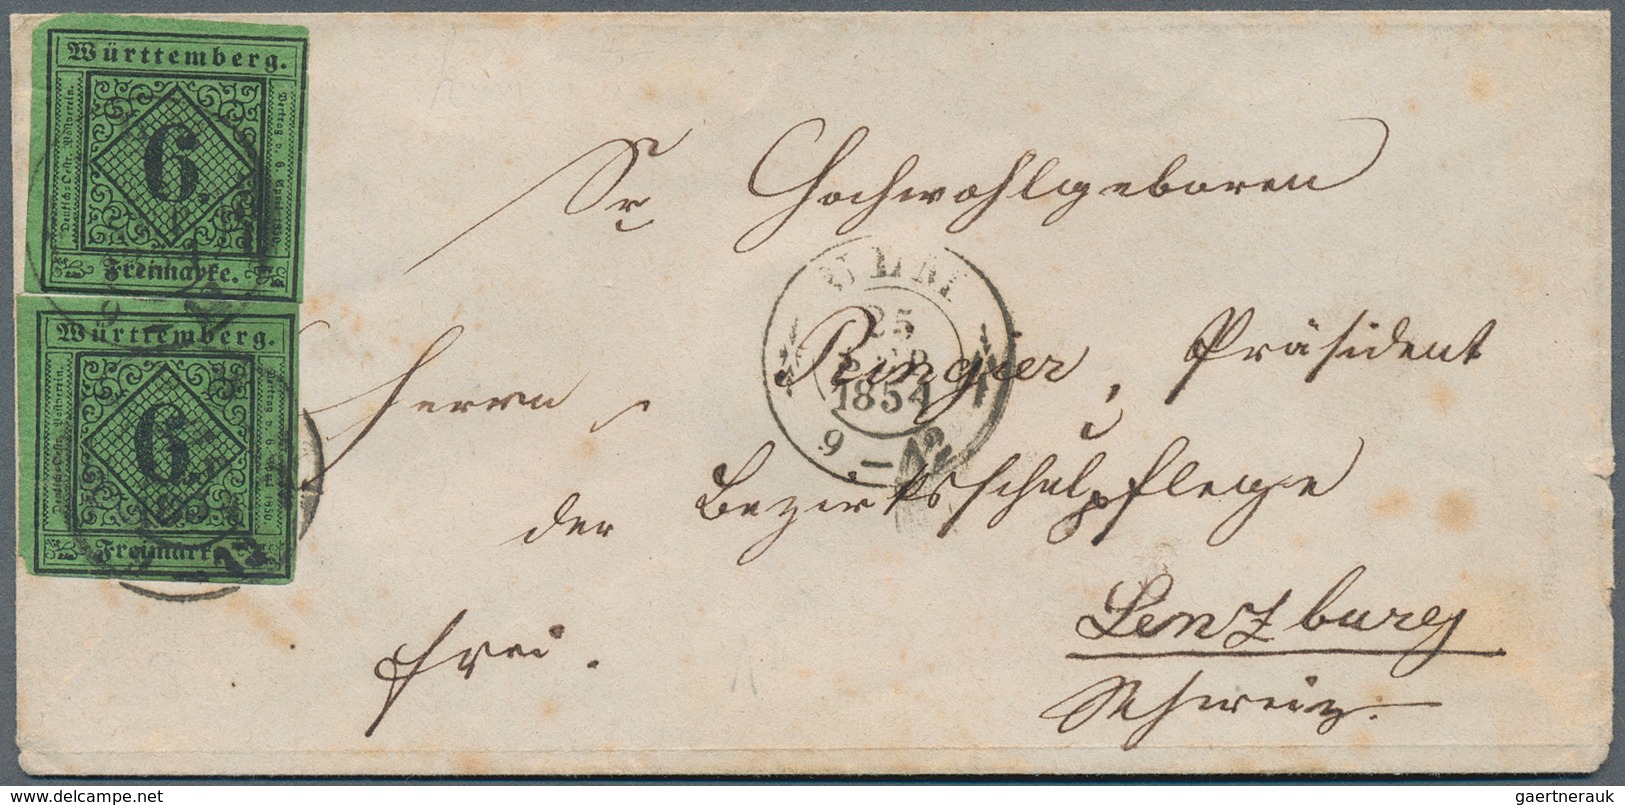 Württemberg.
Deutsch=Oestr. Postverein.
6.
Vertrag v. 6. April 1850.
Freimarke.
Württemberg.
Deutsch=Oestr. Postverein.
6.
Vertrag v. 6. April 1850.
Freimarke.
Sr. Hochwohlgeboren
ULM
25
SEP
1854
9 – 12
Herrn Ringier, Präsident
der Bezirksschulpflege
Lenzburg
frei.
Schweiz.
delcampe.net
gaertnerauk